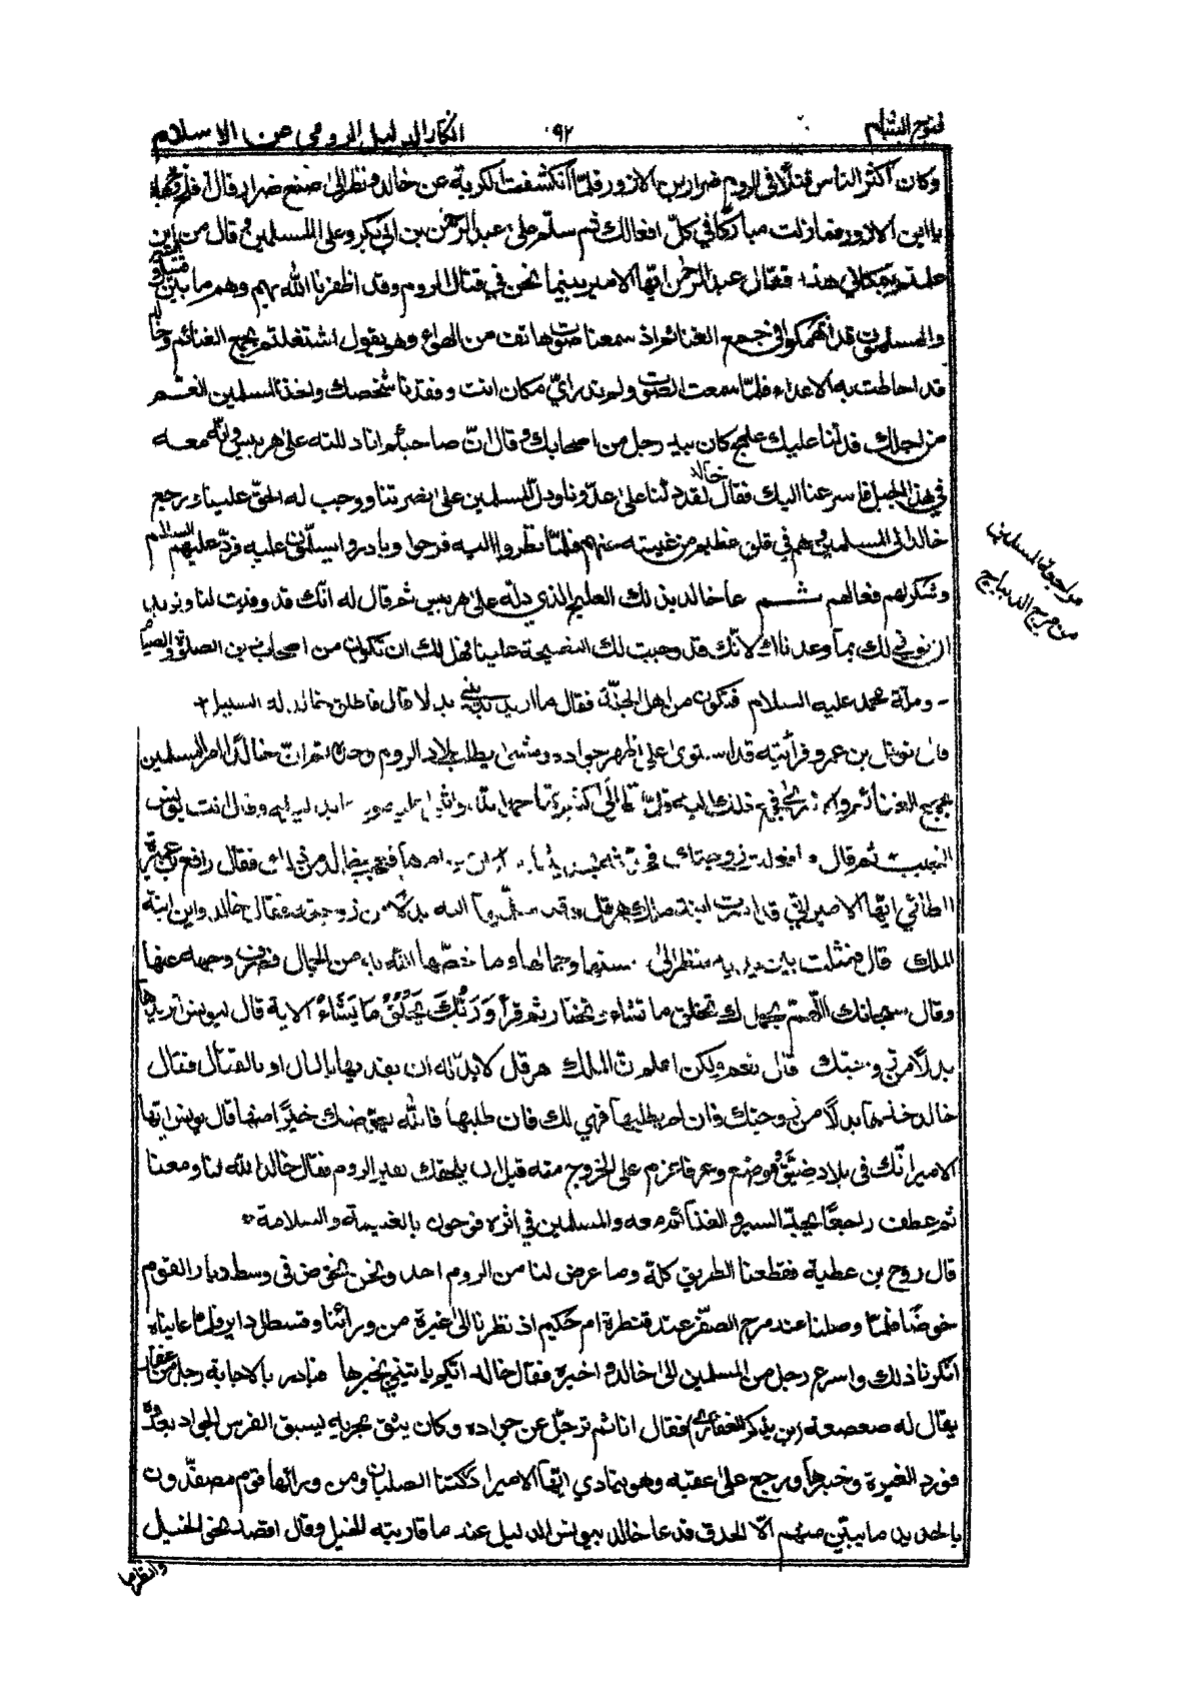 فتوح الشام
٩٢
انكار الدليل الرومي عن الاسلام
وكان اكثر الناس قتلًا في الروم ضرار بن الازور فلمّا انكشفت الكربة عن خالد ونظر الى صنع ضرار قال افلح وجهك
يا ابن الازور فما زلت مباركًا في كلّ افعالك ثم سلّم على عبد الرحمن بن ابي بكر وعلى المسلمين وقال من اين
علمتم بمكاني هذا فقال عبد الرحمن ايّها الامير بينما نحن في قتال الروم وقد اظفرنا الله بهم وهم ما بين قتيل و
والمسلمون قد انهمكوا في جمع الغنائم اذ سمعنا صوت هاتف من الهواء وهو يقول اشتغلتم بجمع الغنائم وخالد
قد احاطت به الاعداء فلمّا سمعت الصوت ولم ندر ايّ مكان انت وفقدنا شخصك واخذ المسلمين الغمّ
من اجلك فدلّنا عليك علج كان بيد رجل من اصحابك وقال انّ صاحبكم انا دللته على هربيس وانّه معه
في هذا الجبل فاسرعنا اليك فقال خالد لقد دلّنا على عدّونا ودلّ المسلمين على نصرتنا ووجب له الحقّ علينا ورجع
خالد الى المسلمين وهم في قلق عظيم من غيبته عنهم فلمّا نظروا اليه فرحوا وبادروا يسلّمون عليه فردّ عليهم السلام
وشكر لهم فعالهم ثم دعا خالد بذلك العليج الذي دلّه على هربيس ثم قال له انّك قد وفيت لنا ونريد
ان نوفي لك بما وعدناك لانّك قد وجبت لك النصيحة علينا فهل لك ان تكون من اصحاب دين الصلوة والصيام
وملة محمد عليه السلام فتكون من اهل الجنّة فقال ما اريد بديني بدلا قال فاطلق خالد له السبيل
قال نوفل بن عمرو فرأيته قد استوى على ظهر جواده ومشى يطلب بلاد الروم وحده ثم انّ خالدًا امر المسلمين
بجمع الغنائم
النجيب ثم قال وما فعلت زوجتك فقال رافع بن عميرة
الطائي ايّها الامير انّي قد اسرت ابنة ملك هرقل وقد سلّمتها اليه بدلا من زوجته فقال خالد واين ابنة
الملك قال فمثلت بين يديه فنظر الى حسنها وجمالها وما خصّها الله به من الجمال فصرف وجهه عنها
وقال سبحانك اللّهمّ وبحمدك تخلق ما تشاء وتختار ثم قرأ وَرَبُّكَ يَخْلُقُ مَا يَشَاءُ الاية قال ليونس اتريدها
بدلًا من زوجتك قال نعم ولكن اعلم انّ الملك هرقل لا بدّ له ان يفديها بالمال او بالقتال فقال
خالد خذها بدلًا من زوجتك فان لم يطلبها فهي لك فان طلبها فالله يعوّضك خيرًا منها قال يونس ايّها
الامير انّك في بلاد ضيّق وموضع وعر فاعزم على الخروج منه قبل ان يلحقك نفير الروم فقال خالد الله لنا ومعنا
ثم عطف راجعًا بجدّ السير والغنائم معه والمسلمين في اثره فرحون بالغنيمة والسلامة
قال روح بن عطية فقطعنا الطريق كلّه وما عرض لنا من الروم احد ونحن نخوض في وسط ديار القوم
خوضًا فلمّا وصلنا عند مرج الصفّر عند قنطرة ام حكيم اذ نظرنا الى غبرة من ورائنا وقسطل دابر فلمّا عايناه
انكرنا ذلك واسرع رجل من المسلمين الى خالد واخبره فقال خالد ايّكم ياتيني بخبرها فبادر بالاجابة رجل من غفار
يقال له صعصعة فقال انا ثم ترجّل عن جواده وكان يثق بجريه ليسبق الفرس الجواد بعدوه
فورد الغبرة وخبرها ورجع على عقبه وهو ينادي ايّها الامير ادركتنا الصلبان ومن ورائها قوم مصفّدون
بالحديد ما يبين منهم الّا الحدق فدعا خالد بيونس الدليل عند ما قاربته الخيل وقال اقصد نحو الخيل
وانظر ما
مراجعة المسلمين
من مرج الديباج